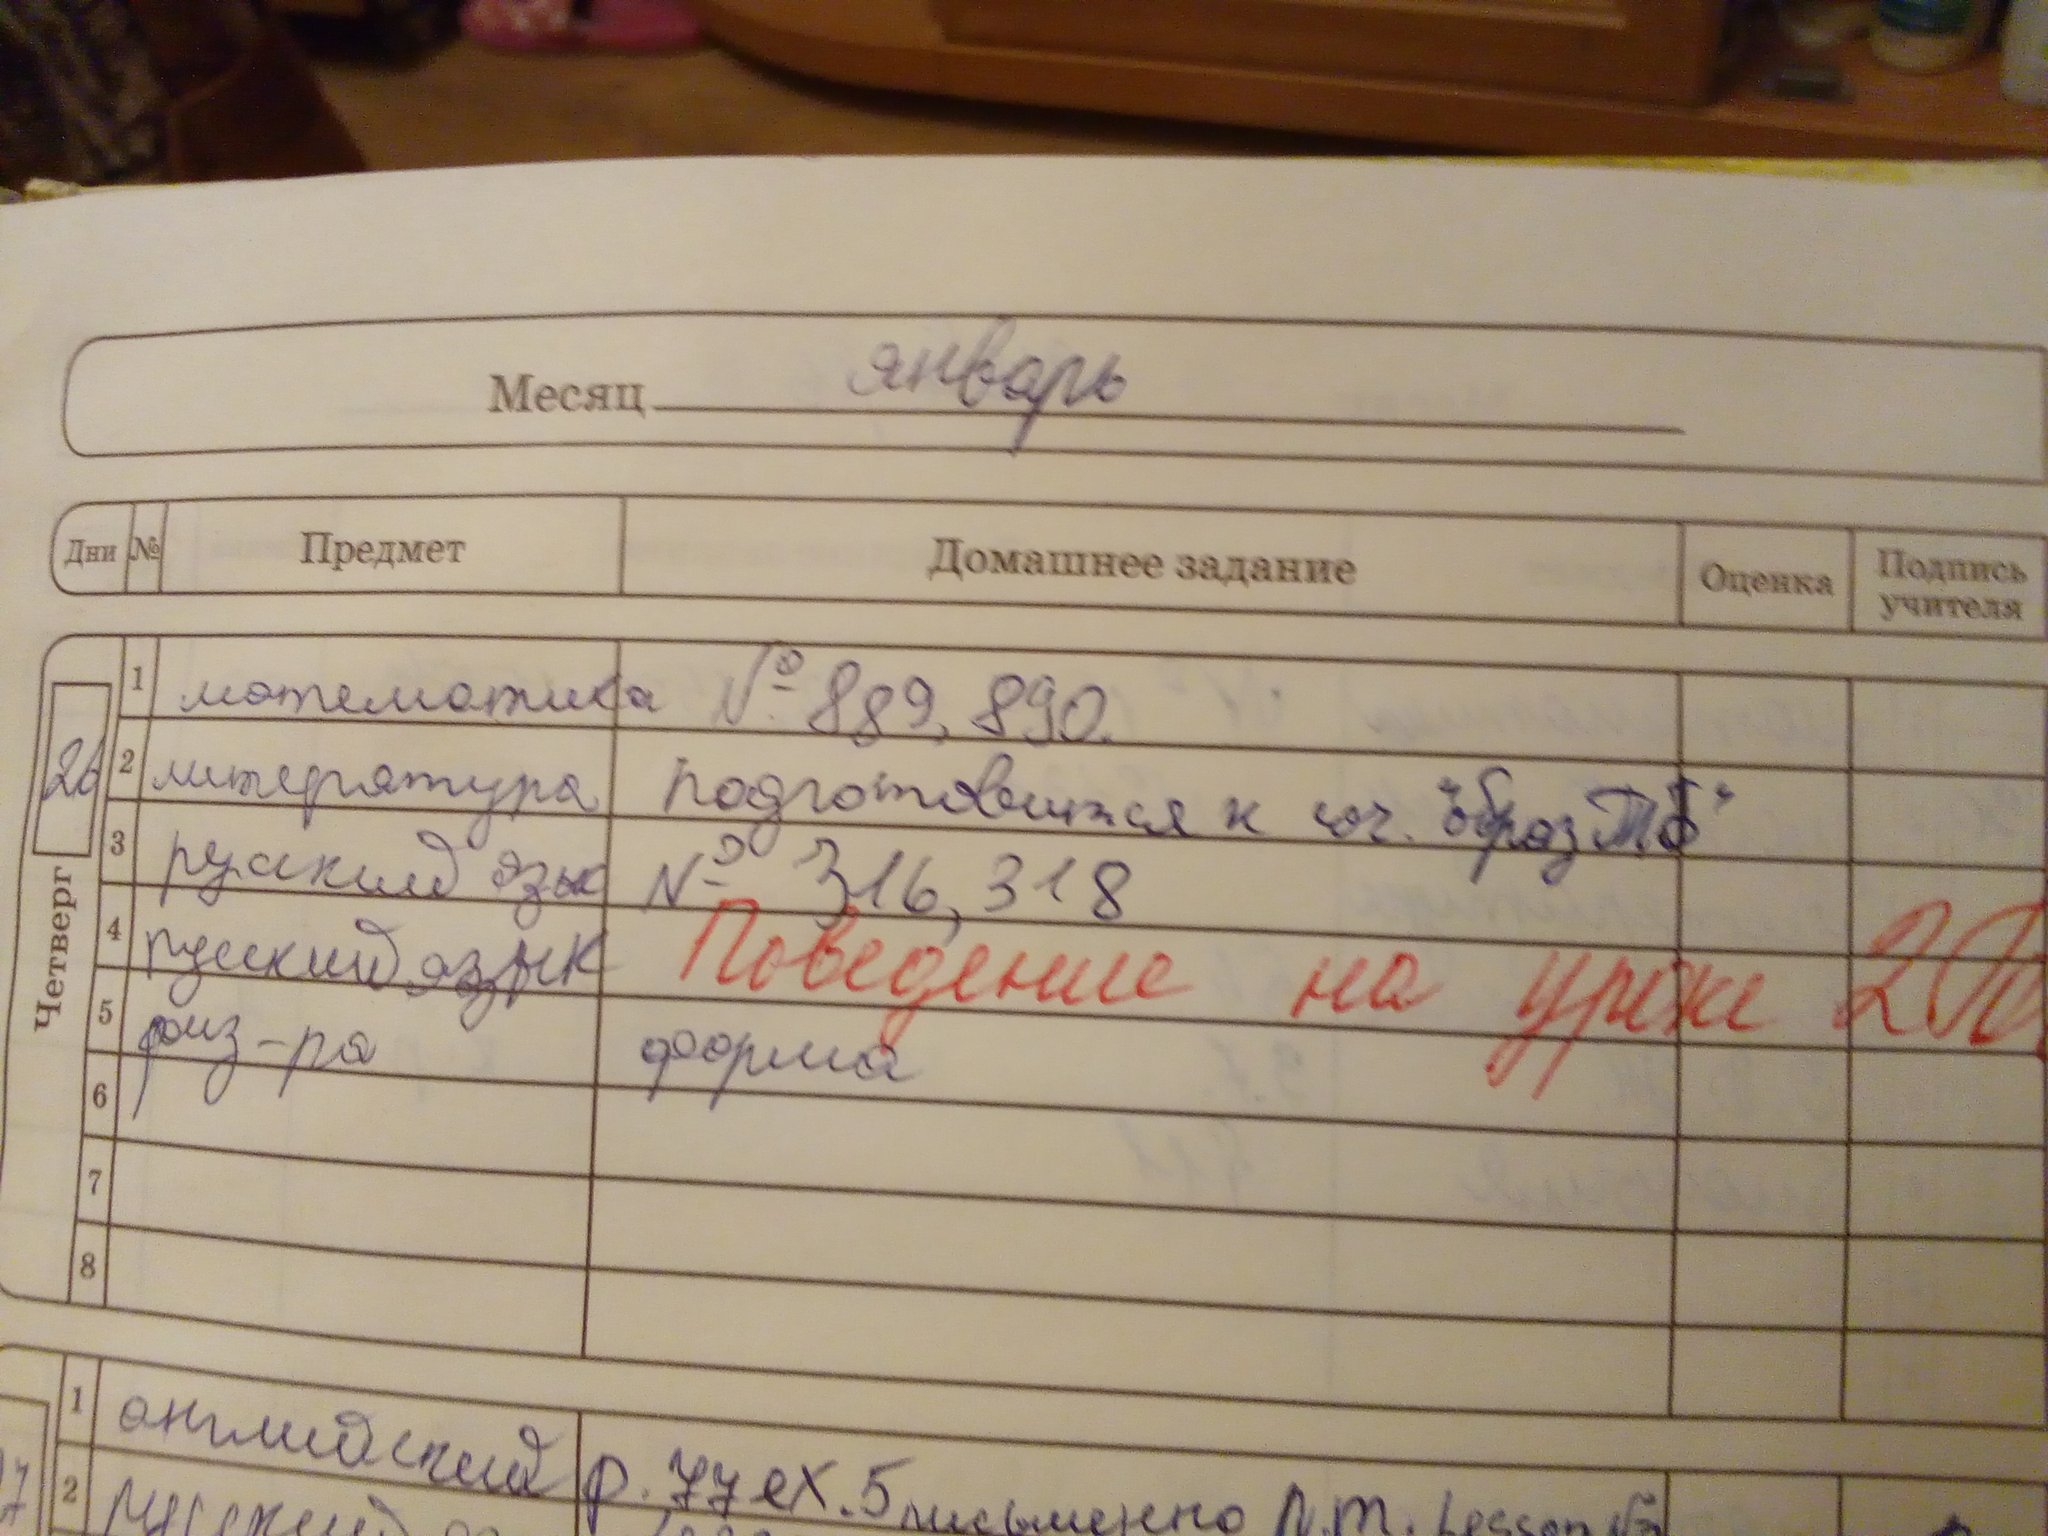 Месяц январь
Дни № Предмет Домашнее задание Оценка Подпись учителя
26 Четверг
1 математика № 889, 890.
2 литература подготовится к соч. "образ ТБ"
3 русский язык № 316, 318
4 русский язык Поведение на уроке 2
5 физ-ра форма
6
7
8
1 английский р. 77 ex. 5 письменно Lesson
2 русский